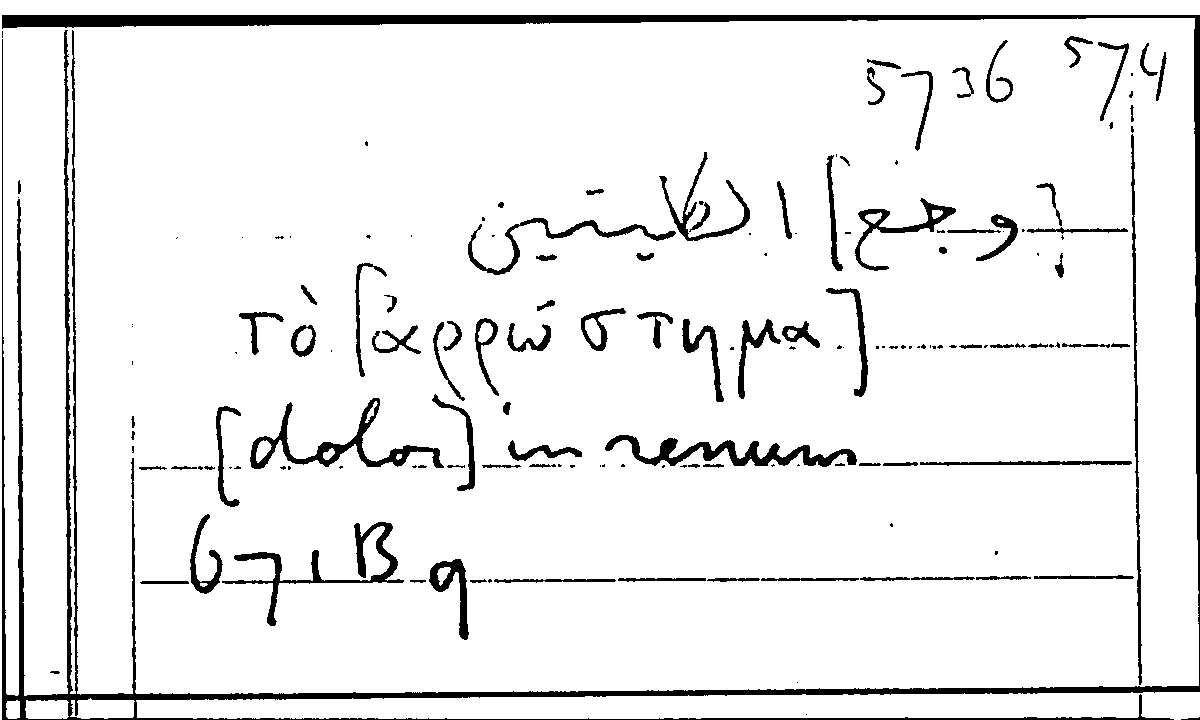 5736 574
[وجع] الكليتين
τὸ [ἀρρώστημα]
[dolor] in renum
671 B 9